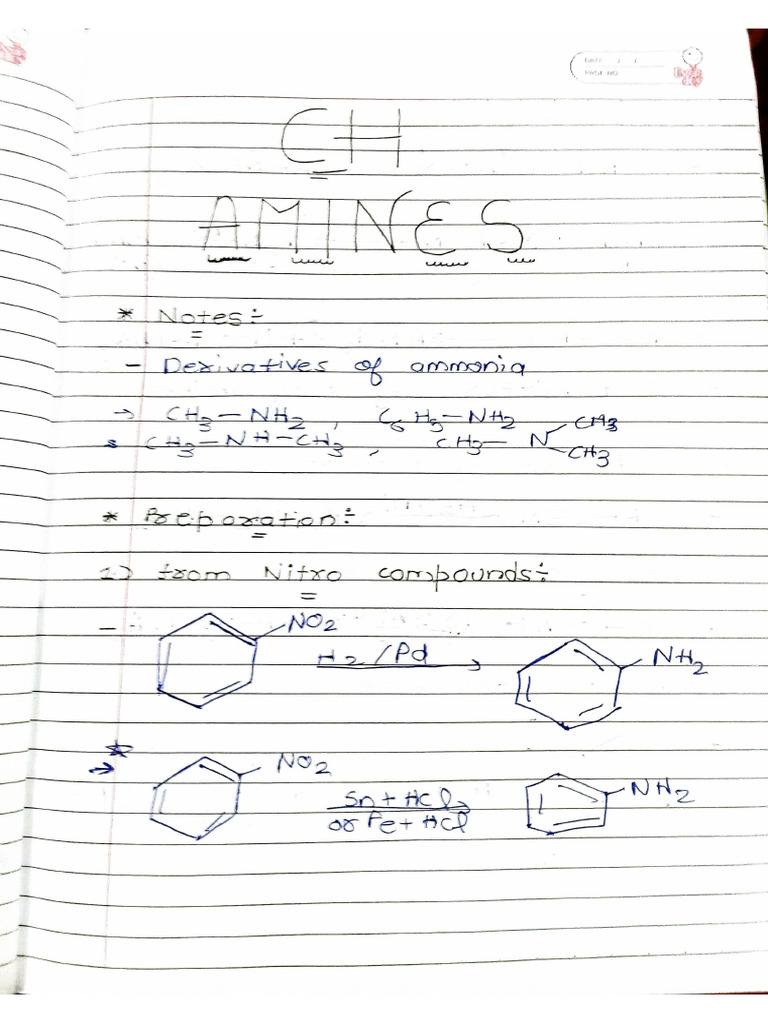 DATE / /
PAGE NO.
CH
AMINES
* Notes÷
- Derivatives of ammonia
→ CH3-NH2, C6H5-NH2
CH3-NH-CH3, CH3-N CH3 CH3
* Preparation÷
1) from Nitro compounds÷
- NO2 H2/Pd → NH2
* → NO2 Sn+HCl → NH2
or Fe+HCl